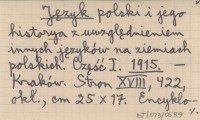 Język polski i jego
historya z uwzględnieniem
innych języków na ziemiach
polskich. Część I. 1915. —
Kraków. Stron XVIII, 422,
okł., cm 25 x 17. Encyklo-